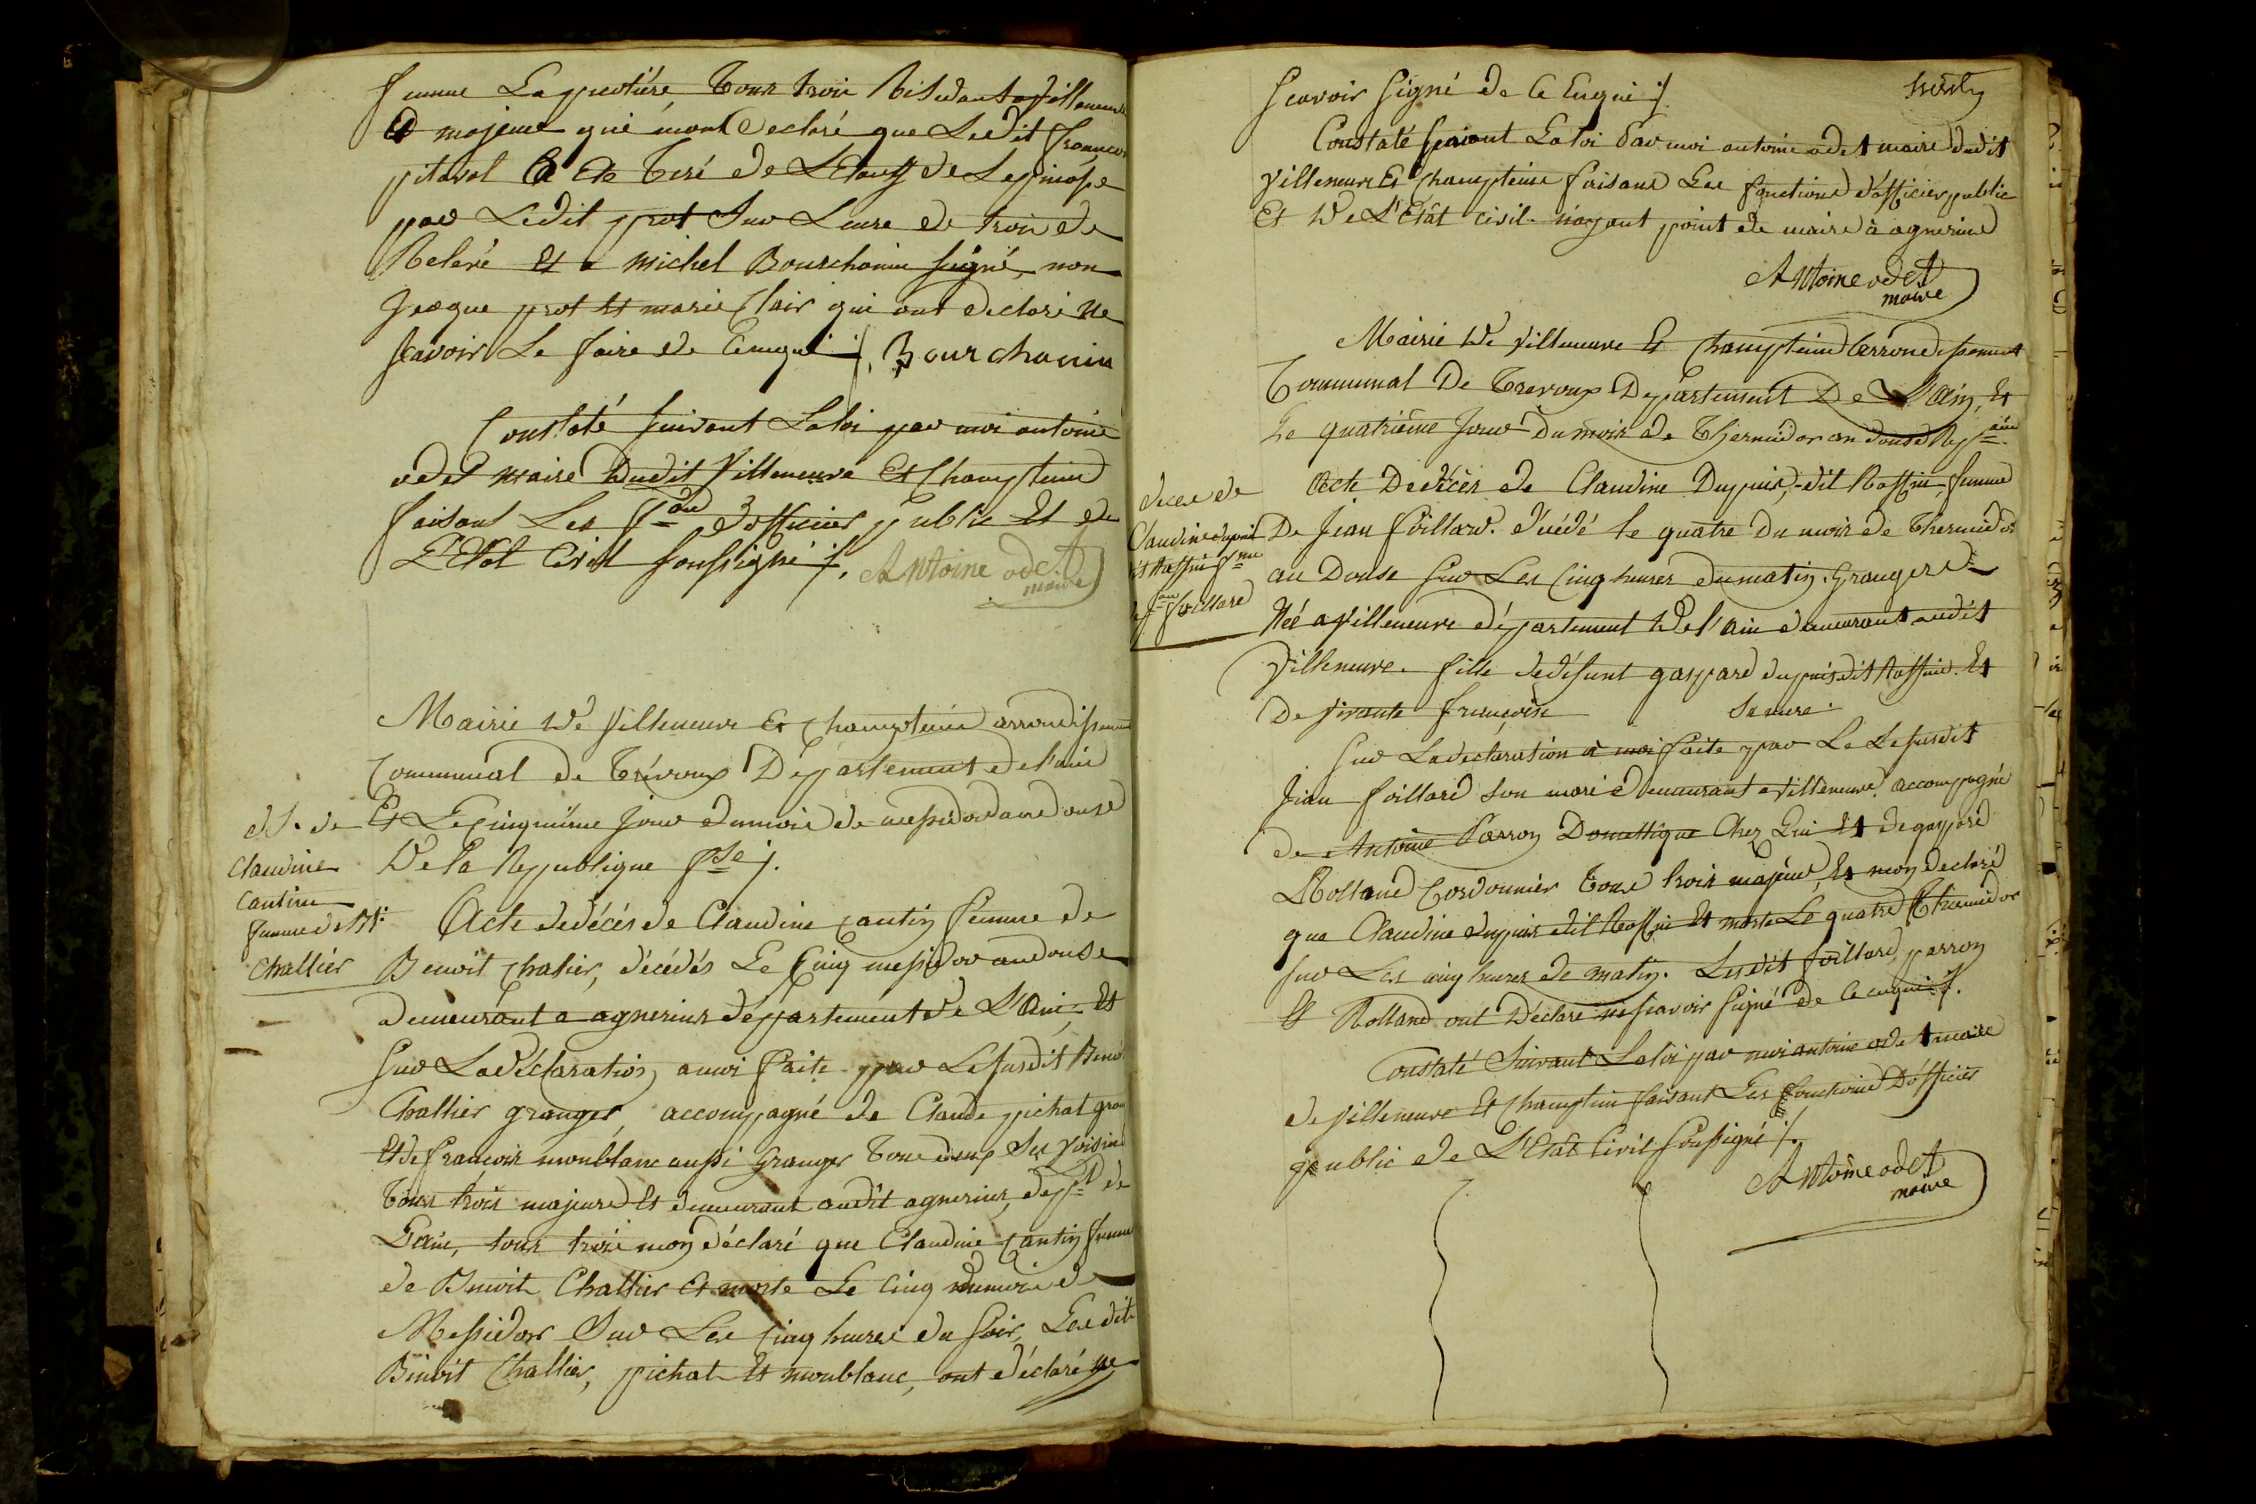 femme Lapreotiére, tous trois Residants a villeneuve
et majeur qui mont declaré que Ledit francois
pitaval a Ete tiré de Letang de Lepinosse
par Ledit prot sur Leure de trois de
Relevé et a michel Bourchanin signé, non
Jacque prot et marie Clair qui ont declaré ne
scavoir Le faire de Enquis ./. Bourchanin
Constaté suivant La loi par moi antoine
odet maire dudit villeneuve et Champteins
faisant Les f.ons d'officier public et de
L'Etat Civil soussigné ./. Antoine odet
maire
Mairie de villeneuve et Champteins arrondissement
Communal de Trévoux Département de l'ain
Et Le cinquième Jour du mois de messidor an douse
de la Republique f.se ./.
d.s de
Claudine
Cantin
femme de Bt.
Challier
Acte de décés de Claudine Cantin femme de
Benoit Chalier, décédés Le Cinq messidor an douse
demeurant a agnerins département de L'Ain, et
sur La déclaration a moi faite par Le susdit Benoit
Challier granger, accompagné de Claude pichat gran
et de francois monblanc aussi granger tous deux ses voisins
tous trois majeurs et demeurant audit agnerins, dep.t de
L'ain, tous trois mon déclaré que Claudine Cantin femme
de Benoit Challier et morte Le cinq du mois de
Messidor sur Les cinq heures du soir, Lesdits
Binoit Challier, pichat et monblanc, ont déclaré ne
scavoir signé de ce Enquis ./.
Constaté suivant La loi par moi antoine odet maire dudit
villeneuve et Champteins faisant Les fonctions d'officier public
Et de L'Etât civil. n'ayant point de maire à agnerins
Antoine odet
maire
Mairie de villeneuve et Champteins arrondissement
Communal De Trevoux Departement De L'Ain, et
Le quatriême Jour du mois de Thermidor an douse
deces de
Claudine dupuis
dit Raffin f.me
de j.an foillard
Acte De décès de Claudine Dupuis, dit Raffin, femme
De Jean foillard. décédé le quatre du mois de thermidor
an Douse sur Les Cinq heures du matin. Grangere
Née a villeneuve département de l'ain demeurant audit
villeneuve. fille de défunt gaspard dupuis dit Raffin. et
De vivante françoise
Sur La declaration a moi faite par Le Susdit
Jean foillard son mari demeurant a villeneuve, accompagné
de Antoine parron Domestique Chez Lui et de gaspard
Rolland Cordonnier tous trois majeurs, et mon declaré
que Claudine dupuis dit Raffin et morte Le quatre Thermidor
sur Les cinq heures de matin. Lesdit foillard, parron
et Rolland ont Déclaré ne scavoir signé de ce enquis ./.
Constaté suivant La loi par moi antoine odet maire
de villeneuve et Champtein faisant Les fonctions D'officier
public de L'Etat Civil soussigné ./.
Antoine odet
maire